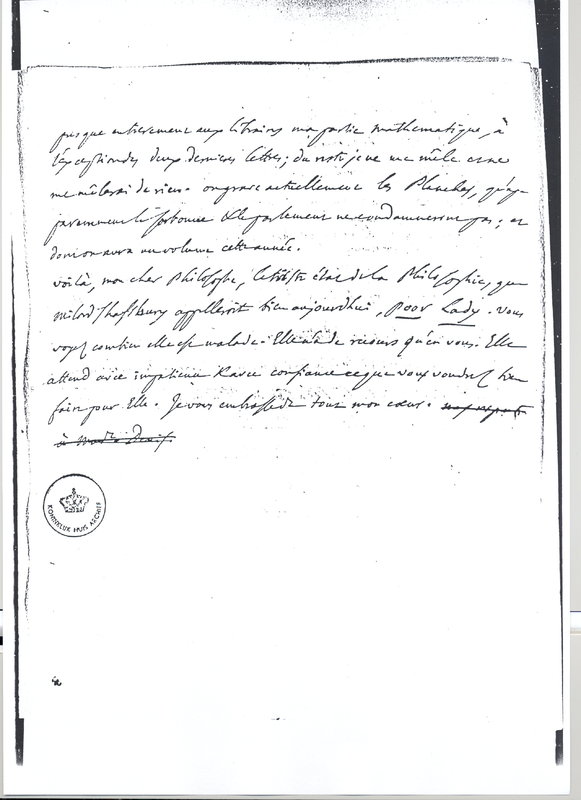 presque entierement aux libraires ma partie mathematique, à
l'exception des deux dernieres lettres; du reste je ne me mêle et ne
me mêlerai de rien. on grave actuellement les Planches, qu'ap-
paremment la sorbonne & le parlement ne condamneront pas; et
dont on aura un volume cette année.
voilà, mon cher Philosophe, le triste état de la Philosophie, que
milord Shaftsbury appelleroit bien aujourdhui, poor Lady. vous
voyez combien elle est malade. Elle n'a de recours qu'en vous. Elle
attend avec impatience & avec confiance ce que vous voudrez bien
faire pour Elle. Je vous embrasse de tout mon coeur. mes respects
à Made Denis.
KONINKLIJK HUIS ARCHIEF